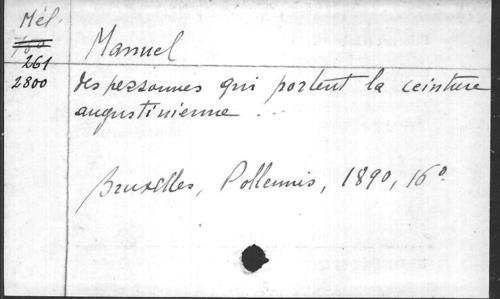 Mél.
261
2800
Manuel
des personnes qui portent la ceinture
augustinienne ...
Bruxelles, Pollennis, 1890, 16°.